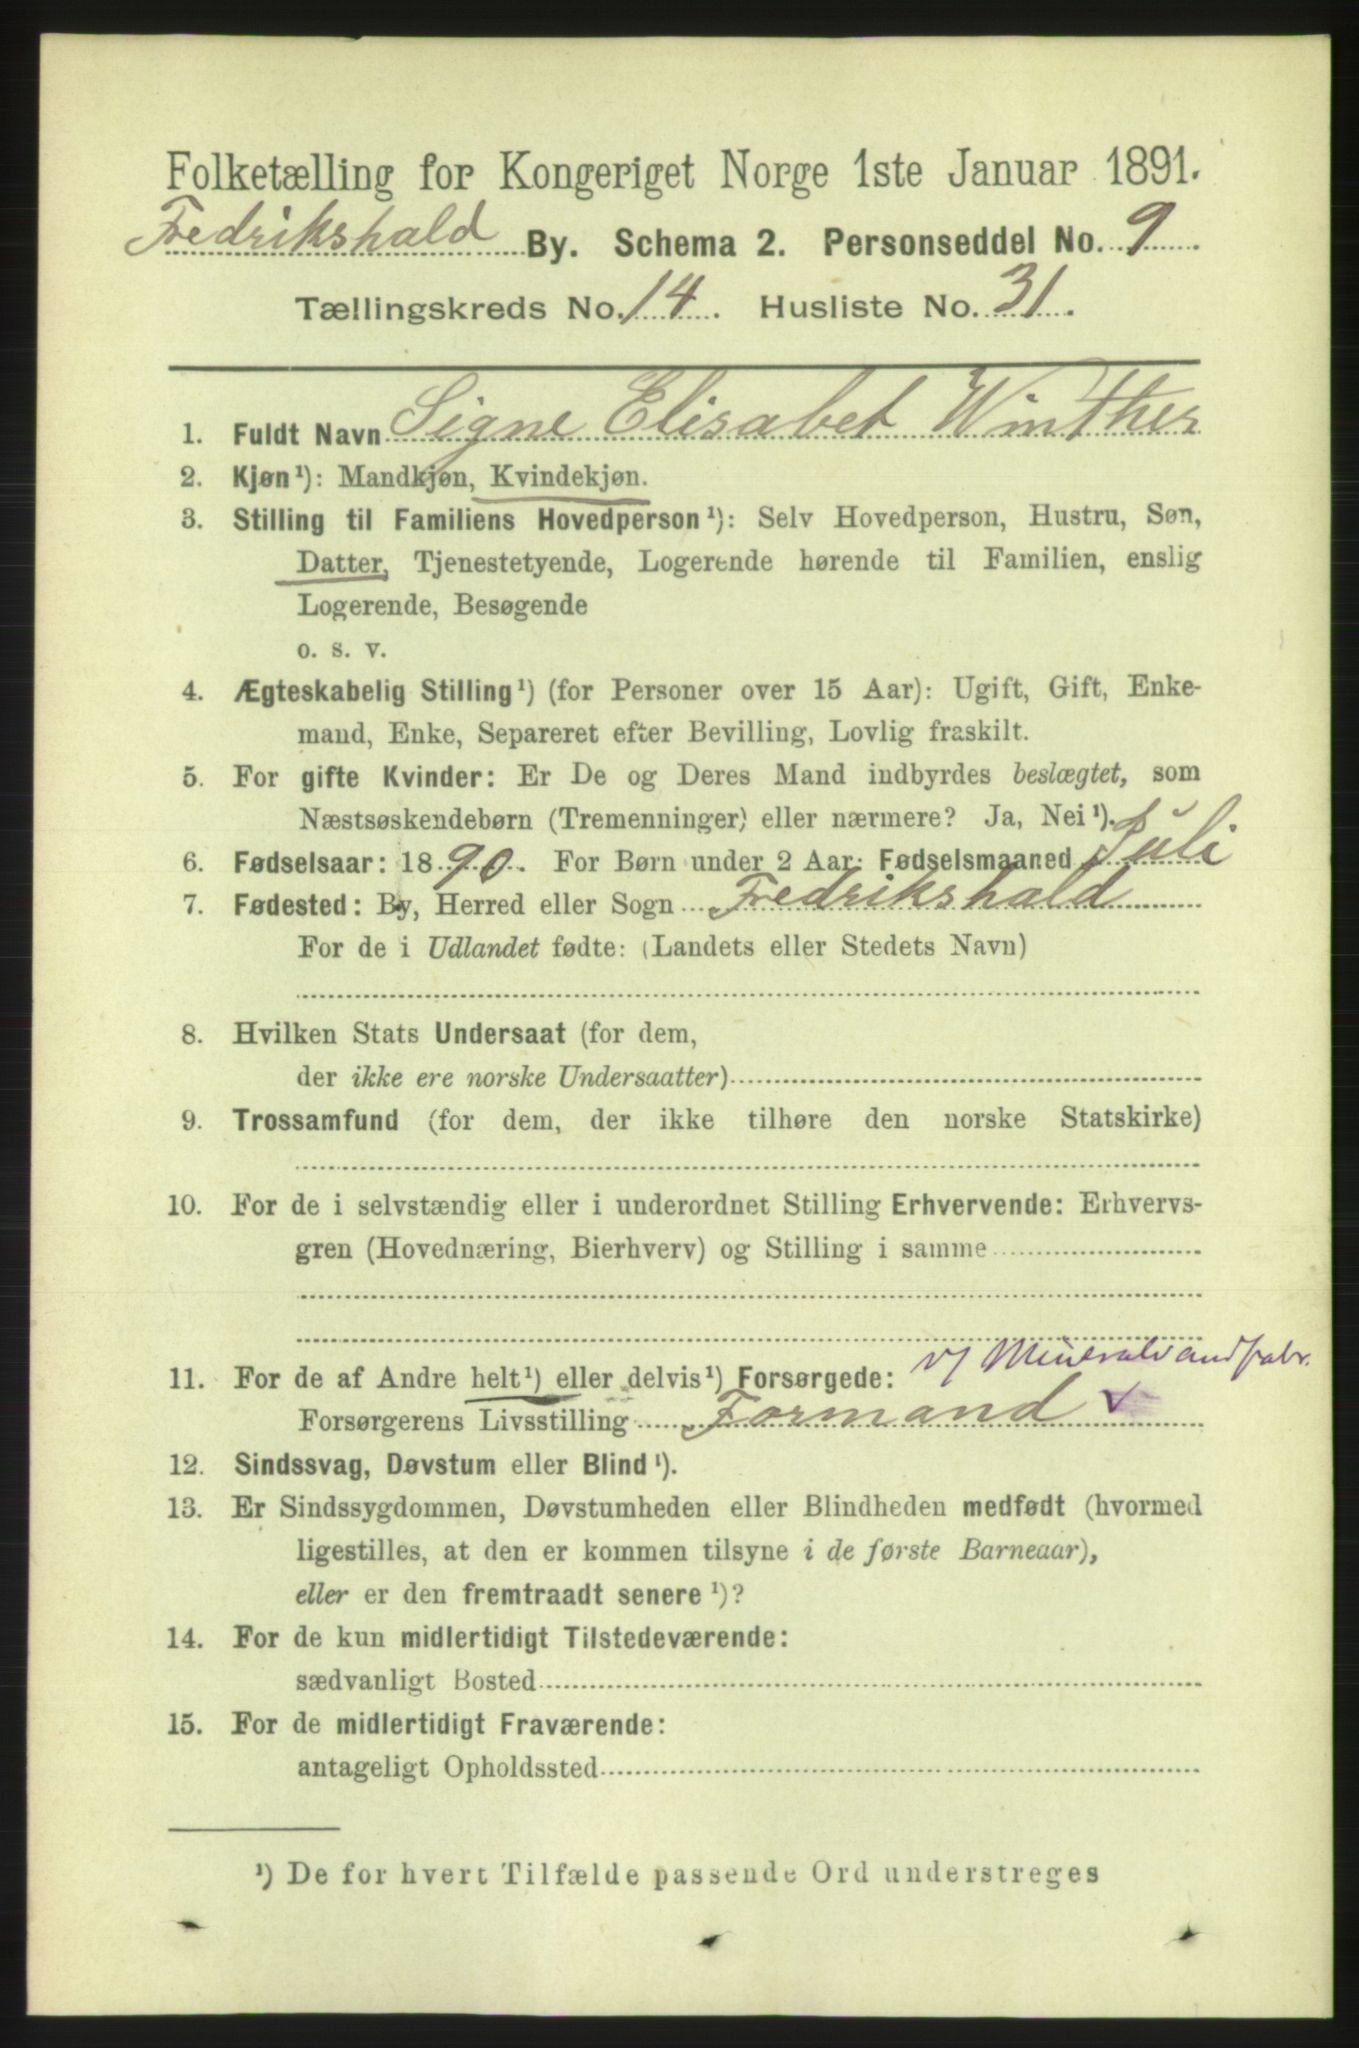 Folketælling for Kongeriget Norge 1ste Januar 1891.
Fredrikshald By. Schema 2. Personseddel No. 9
Tællingskreds No. 14. Husliste No. 31.
1. Fuldt Navn Signe Elisabet Winther
2. Kjøn¹): Mandkjøn, Kvindekjøn.
3. Stilling til Familiens Hovedperson¹): Selv Hovedperson, Hustru, Søn,
Datter, Tjenestetyende, Logerende hørende til Familien, enslig
Logerende, Besøgende
o. s. v.
4. Ægteskabelig Stilling¹) (for Personer over 15 Aar): Ugift, Gift, Enke-
mand, Enke, Separeret efter Bevilling, Lovlig fraskilt.
5. For gifte Kvinder: Er De og Deres Mand indbyrdes beslægtet, som
Næstsøskendebørn (Tremenninger) eller nærmere? Ja, Nei¹).
6. Fødselsaar: 1890. For Børn under 2 Aar: Fødselsmaaned Juli
7. Fødested: By, Herred eller Sogn Fredrikshald
For de i Udlandet fødte: (Landets eller Stedets Navn)
8. Hvilken Stats Undersaat (for dem,
der ikke ere norske Undersaatter)
9. Trossamfund (for dem, der ikke tilhøre den norske Statskirke)
10. For de i selvstændig eller i underordnet Stilling Erhvervende: Erhvervs-
gren (Hovednæring, Bierhverv) og Stilling i samme
v/ Mineralvandfabr.
11. For de af Andre helt¹) eller delvis¹) Forsørgede:
Forsørgerens Livsstilling Formand
12. Sindssvag, Døvstum eller Blind¹).
13. Er Sindssygdommen, Døvstumheden eller Blindheden medfødt (hvormed
ligestilles, at den er kommen tilsyne i de første Barneaar),
eller er den fremtraadt senere¹)?
14. For de kun midlertidigt Tilstedeværende:
sædvanligt Bosted
15. For de midlertidigt Fraværende:
antageligt Opholdssted
¹) De for hvert Tilfælde passende Ord understreges